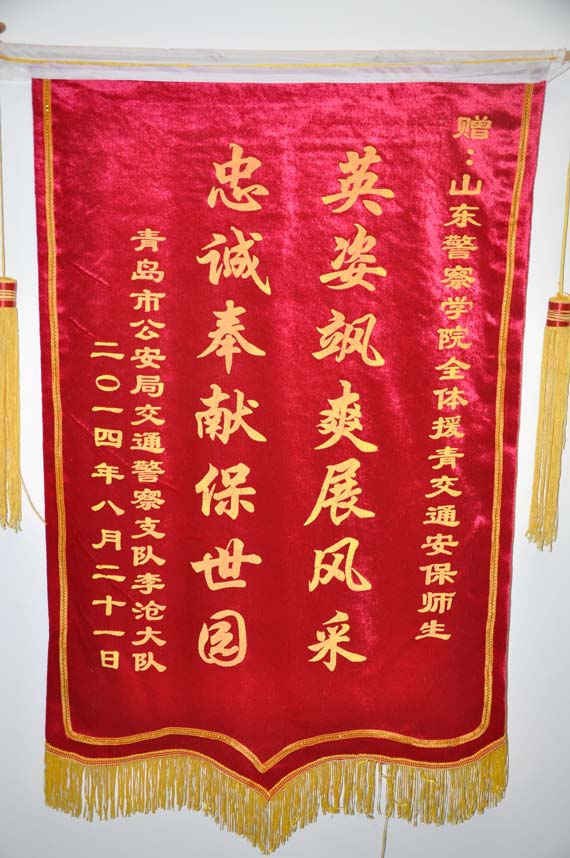 赠：山东警察学院全体援青交通安保师生
英姿飒爽展风采
忠诚奉献保世园
青岛市公安局交通警察支队李沧大队
二〇一四年八月二十一日